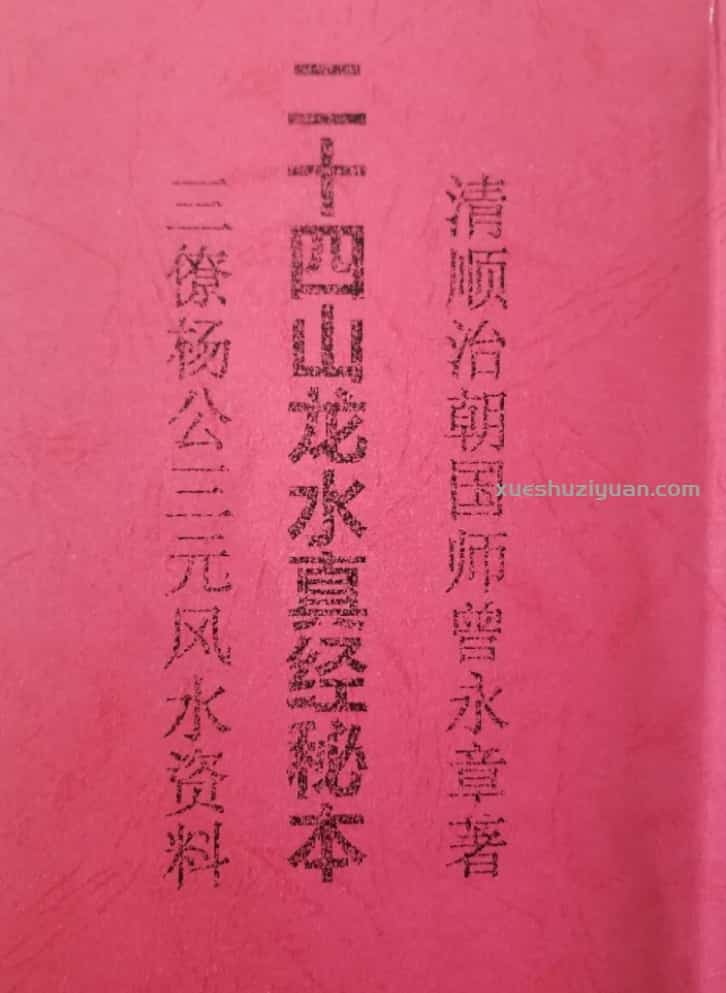 清顺治朝国师曾永章著
二十四山龙水真经秘本
三僚杨公三元风水资料
xueshuziyuan.com